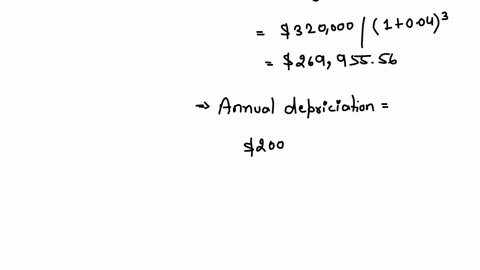 = $320,000 / (1+0.04)³
= $269,955.56
→ Annual depriciation =
$200